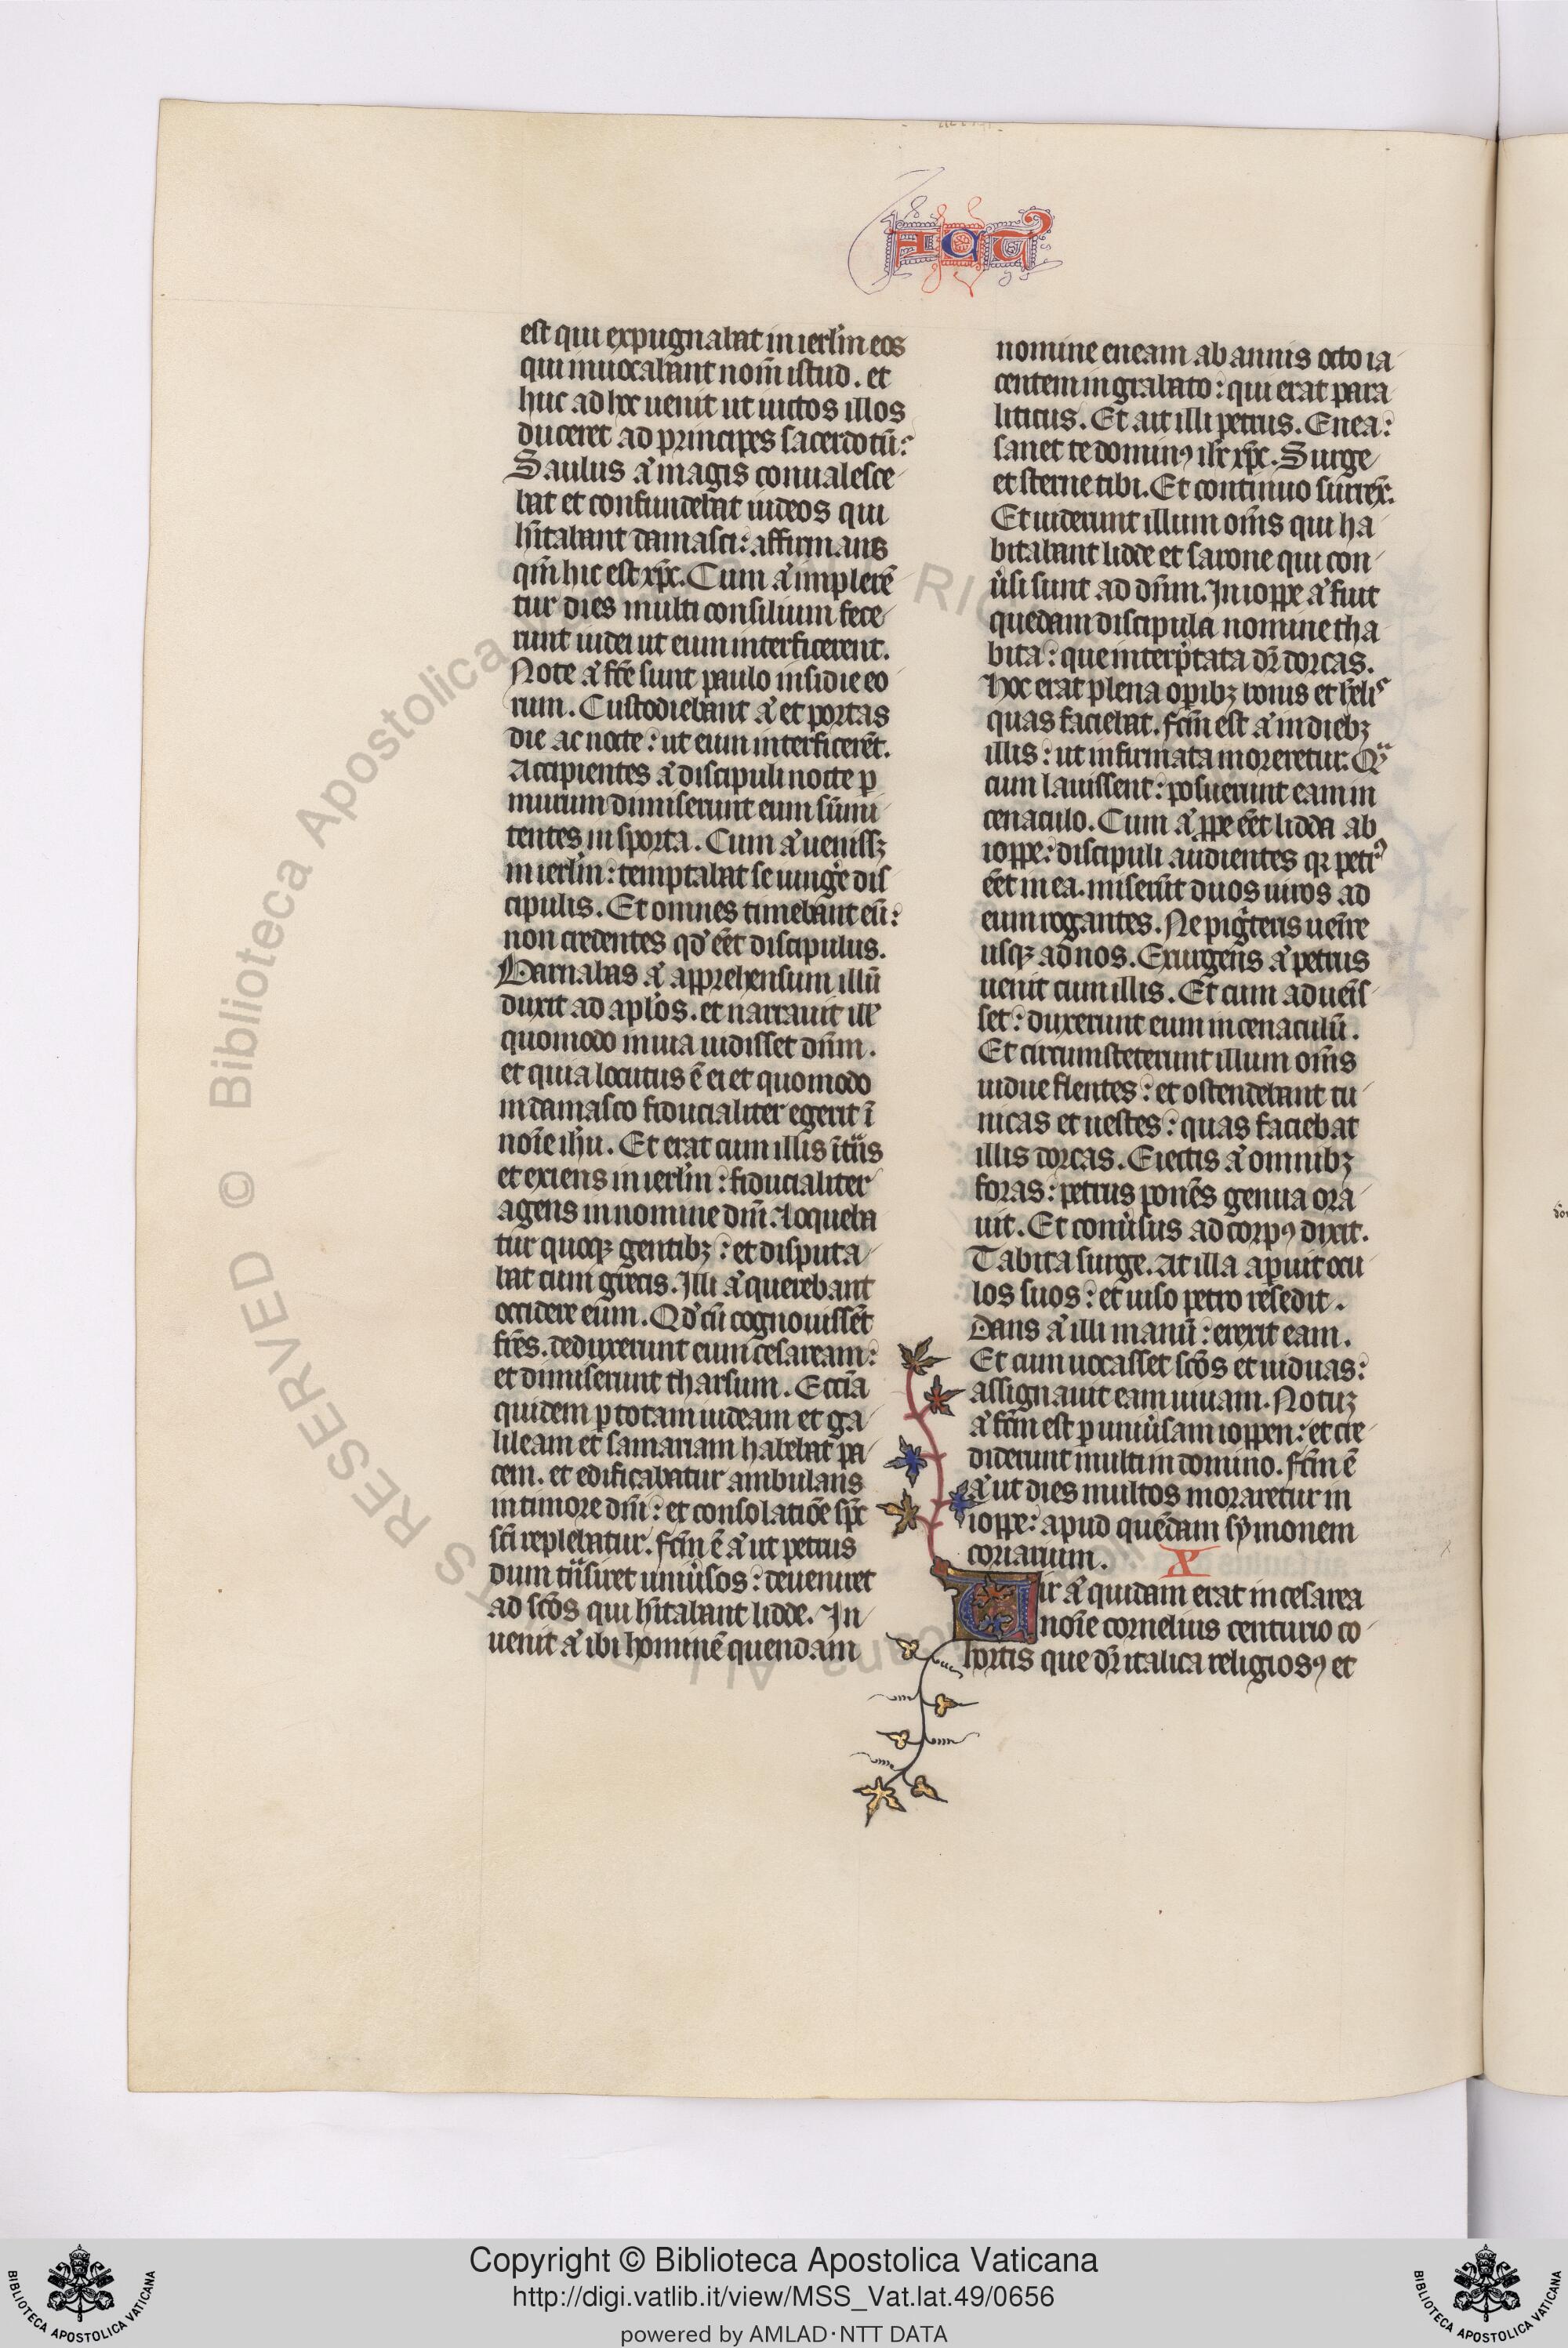 ACT
est qui expugnabat in ierl̄m eos
qui inuocabant nom̄ istud. et
huc ad hoc uenit ut uictos illos
duceret ad principes sacerdotū:
Saulus aͥ magis conualesce
bat et confundebat iudeos qui
hītabant damasci: affirmans
qm̄ hic est xp̄c. Cum aͥ implerē
tur dies multi consilium fece
runt iudei ut eum interficerent.
Note aͥ fc̄e sunt paulo insidie eo
rum. Custodiebant aͥ et portas
die ac nocte: ut eum interficerēt.
Accipientes aͥ discipuli nocte ꝑ
murum dimiserunt eum sūmi
tentes in sporta. Cum aͥ uenissꝫ
in ierl̄m: temptabat se iungͤe dis
cipulis. Et omnes timebant eū:
non credentes qd̕ eēt discipulus.
Barnabas aͥ apprehensum illū
duxit ad apl̄os. et narrauit ill̕
quomodo in uia uidisset dn̄m.
et quia locutus ē ei et quomodo
in damasco fiducialiter egerit ī
noīe ih̄u. Et erat cum illis ītͣns
et exiens in ierl̄m: fiducialiter
agens in nomine dn̄i. Loqueba
tur quoqꝫ gentibꝫ: et disputa
bat cum grecis. Illi aͥ querebant
occidere eum. Qd̕ cū cognouissēt
fr̄es. deduxerunt eum cesaream:
et dimiserunt tharsum. Eccl̄ia
quidem ꝑ totam iudeam et ga
lileam et samariam habebat pa
cem. et edificabatur ambulans
in timore dn̄i: et consolatiōe sp̄c
sc̄i replebatur. Fcm̄ ē aͥ ut petrus
dum tͣnsiret uniu̕sos: deueniret
ad sc̄os qui hītabant lidde. In
uenit aͥ ibi hominē quendam
nomine eneam ab annis octo ia
centem in grabato: qui erat para
liticus. Et ait illi petrus. Enea:
sanet te dominꝰ ih̄c xp̄c. Surge
et sterne tibi. Et continuo surrex̄.
Et uiderunt illum om̄s qui ha
bitabant lidde et sarone qui con
u̕si sunt ad dn̄m. In ioppe aͥ fuit
quedam discipula nomine tha
bita: que interp̄tata dr̄ dorcas.
Hoc erat plena oꝑibꝫ bonis et el̄is
quas faciebat. Fcm̄ est aͥ in diebꝫ
illis: ut infirmata moreretur. Qͣꝫ
cum lauissent: posuerunt eam in
cenaculo. Cum aͥ ꝓpe eēt lidda ab
ioppe: discipuli audientes qꝛ petrꝰ
eēt in ea. miserūt duos uiros ad
eum rogantes. Ne pigͥteris uenͥre
usqꝫ ad nos. Exurgens aͥ petrus
uenit cum illis. Et cum aduenis
set: duxerunt eum in cenaculū.
Et circumsteterunt illum om̄s
uidue flentes: et ostendebant tu
nicas et uestes: quas faciebat
illis dorcas. Eiectis aͥ omnibꝫ
foras: petrus ponēs genua ora
uit. Et conu̕sus ad corpꝰ dixit.
Tabita surge. At illa aꝑuit ocu
los suos: et uiso petro resedit.
Dans aͥ illi manū: erexit eam.
Et cum uocasset sc̄os et uiduas:
assignauit eam uiuam. Notuꝫ
aͥ fcm̄ est ꝑ uniu̕sam ioppen: et cre
diderunt multi in domino. Fcm̄ ē
aͥ ut dies multos moraretur in
ioppe: apud quēdam symonem
coriarium. X
Uir aͥ quidam erat in cesarea
noīe cornelius centurio co
hortis que dr̄ italica religiosꝰ et
© Biblioteca Apostolica Vaticana ALL RIGHTS RESERVED
Copyright © Biblioteca Apostolica Vaticana
http://digi.vatlib.it/view/MSS_Vat.lat.49/0656
powered by AMLAD·NTT DATA
BIBLIOTECA APOSTOLICA VATICANA
BIBLIOTECA APOSTOLICA VATICANA